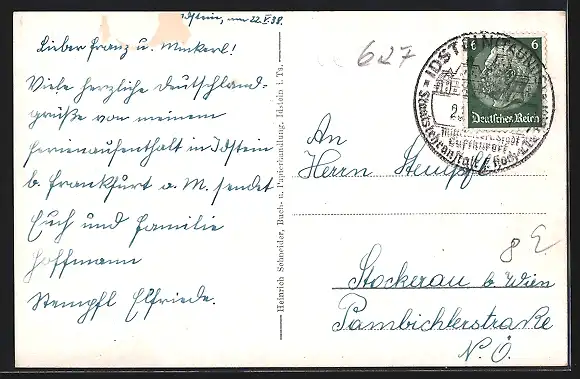 Idstein, am 22.V.38.
Lieber Franz u. Minkerl!
Viele herzliche Deutschland-
grüße von meinem
Ferienaufenthalt in Idstein
b. Frankfurt a. M. sendet
Euch und Familie
Hoffmann
Stempfl Elfriede.
Heinrich Schneider, Buch- u. Papierhandlung, Idstein i. Ts.
627
6 6
Deutsches Reich
IDSTEIN (TAUNUS)
Staatslehranstalt f. Hoch-
An
Herrn Stempfl
8 E
Stockerau b. Wien
Pambichlerstraße
N. Ö.